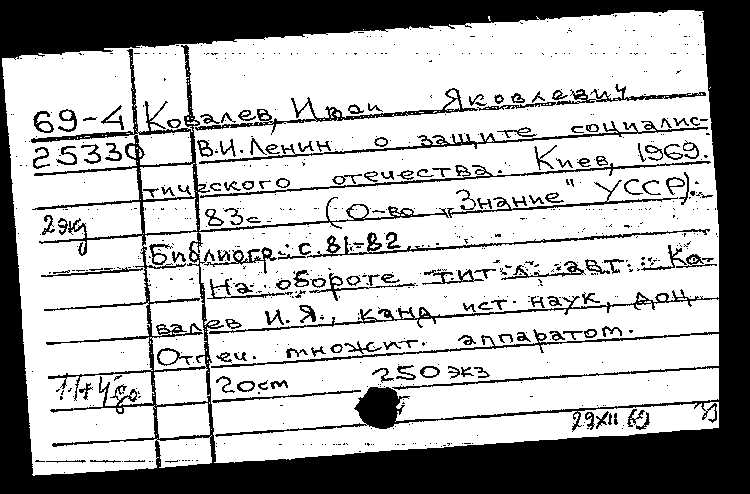 69-4 Ковалев, Иван Яковлевич
25330 В.И. Ленин о защите социалис-
тического отечества. Киев, 1969.
2 экз 83с. (О-во „Знание" УССР).
Библиогр.: с. 81-82.
На обороте тит. л. авт.: Ко-
валев И.Я., канд ист. наук, доц.
Отпеч. множит. аппаратом.
20 см 250 экз
29 XII 69